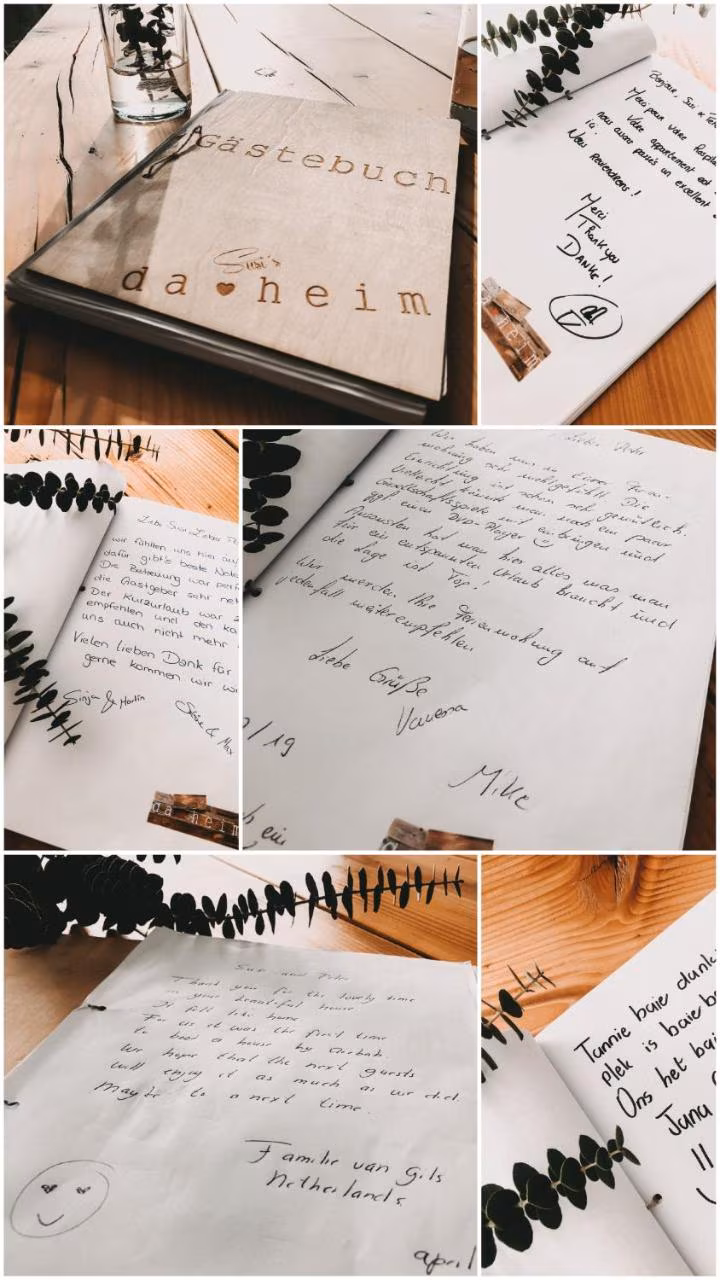 Gästebuch
Susi's
da heim
Bonjour, Susi
Merci pour votre
Votre appartement est
nous avons passés un excellent
ici.
Nous reviendrons!
Merci
Thank you
DANKE!
da heim
Liebe Susi Lieber
wir fühlten uns hier
dafür gibt's beste
Die Betreuung war
die Gastgeber sehr
Der Kurzurlaub war
empfehlen und den
uns auch nicht mehr
Vielen lieben Dank für
gerne kommen wir
Martin
& Max
da heim
Wir haben uns in Ihrer
sehr wohlgefühlt. Die
Einrichtung ist schön und gemütlich.
Vielleicht könnte man noch ein paar
Gesellschaftsspiele mit einbringen und
ggf. einen DVD-Player
Ansonsten hat man hier alles was man
für ein entspannten Urlaub braucht und
die Lage ist Top!
Wir werden Ihre Ferienwohnung auf
jedenfall weiterempfehlen
Liebe Grüße
Vanessa
Mike
/19
ein
Susi and Peter
Thank you for the lovely time
in your beautiful house
It felt like home
For us it was the first time
to book a house by airbnb.
We hope that the next guests
will enjoy it as much as we did.
Maybe to a next time.
Familie van Gils
Netherlands
april
Tannie baie dankie
plek is baie
Ons het
Jana